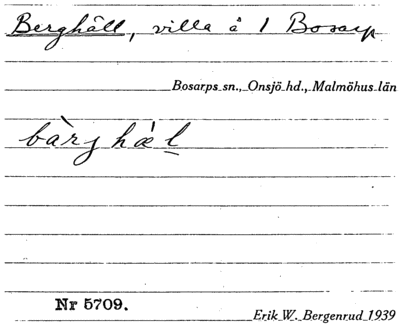 Berghäll, villa å 1 Bosarp
Bosarps sn., Onsjö hd., Malmöhus län
bàrj hæ̍l
Nr 5709.
Erik W. Bergenrud 1939